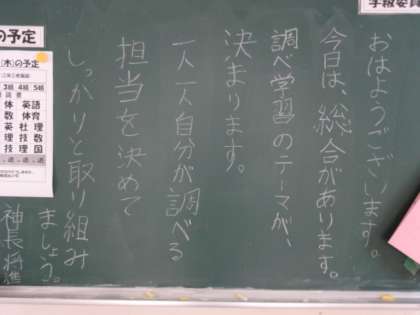 学級委員
おはようございます。
今日は、総合があります。
調べ学習のテーマが、
決まります。
一人一人自分が調べる
担当を決めて
しっかりと取り組み
ましょう。
の予定
(木)の予定
3組 4組 5組
体 英語
数 体育
英 社 理
理 技 数
理 技 国